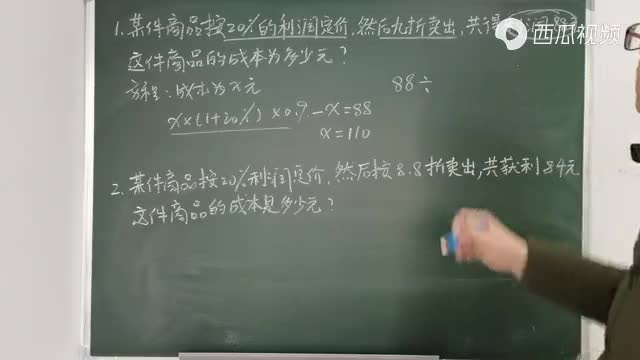 1. 某件商品按20%的利润定价,然后九折卖出,共得
西瓜视频
这件商品的成本为多少元?
方程:成本为x元
88÷
x×(1+20%)×0.9-x=88
x=110
2. 某件商品按20%利润定价,然后按8.8折卖出,共获利84元
这件商品的成本是多少元?